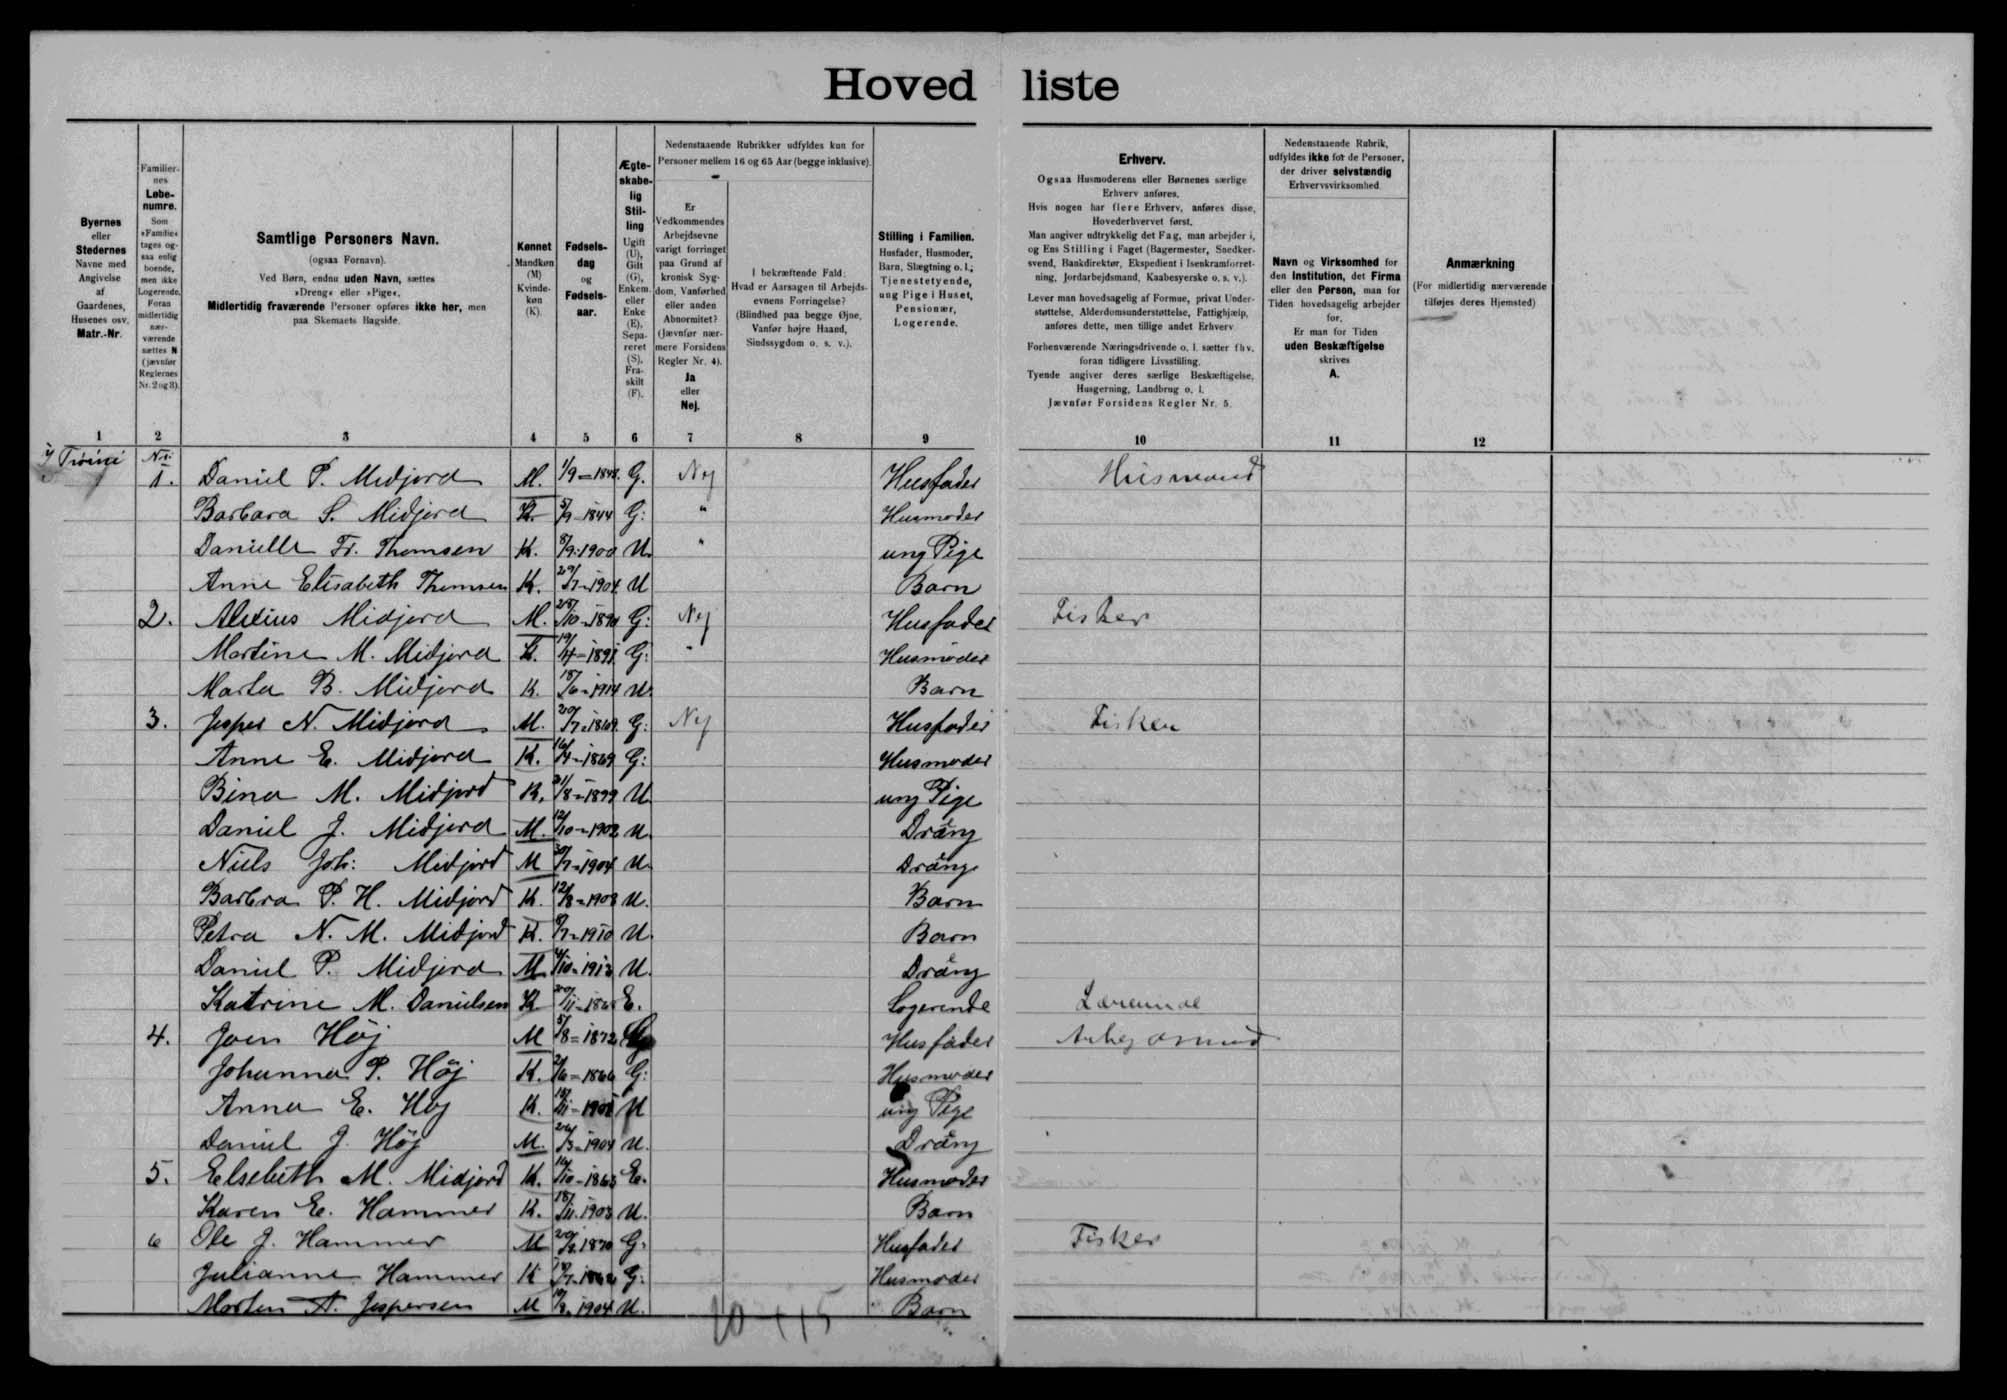 Hovedliste
Byernes eller Stedernes Navne med Angivelse af Gaardenes, Husenes osv. Matr.-Nr.
Familiernes Løbenumre. Som »Familie« tages ogsaa enlig boende, men ikke Logerende. Foran midlertidig nærværende sættes N (jævnfør Reglernes Nr. 2 og 3).
Samtlige Personers Navn. (ogsaa Fornavn). Ved Børn, endnu uden Navn, sættes »Dreng« eller »Pige«. Midlertidig fraværende Personer opføres ikke her, men paa Skemaets Bagside.
Kønnet Mandkøn (M) Kvindekøn (K).
Fødselsdag og Fødselsaar.
Ægteskabelig Stilling Ugift (U), Gift (G), Enkem. eller Enke (E), Separeret (S), Fraskilt (F).
Nedenstaaende Rubrikker udfyldes kun for Personer mellem 16 og 65 Aar (begge inklusive).
Er Vedkommendes Arbejdsevne varigt forringet paa Grund af kronisk Sygdom, Vanførhed eller anden Abnormitet? (Jævnfør nærmere Forsidens Regler Nr. 4). Ja eller Nej.
I bekræftende Fald: Hvad er Aarsagen til Arbejdsevnens Forringelse? (Blindhed paa begge Øjne, Vanfør højre Haand, Sindssygdom o. s. v.).
Stilling i Familien. Husfader, Husmoder, Barn, Slægtning o. l.; Tjenestetyende, ung Pige i Huset, Pensionær, Logerende.
Erhverv. Ogsaa Husmoderens eller Børnenes særlige Erhverv anføres. Hvis nogen har flere Erhverv, anføres disse, Hovederhvervet først. Man angiver udtrykkelig det Fag, man arbejder i, og Ens Stilling i Faget (Bagermester, Snedkersvend, Bankdirektør, Ekspedient i Isenkramforretning, Jordarbejdsmand, Kaabesyerske o. s. v.). Lever man hovedsagelig af Formue, privat Understøttelse, Alderdomsunderstøttelse, Fattighjælp, anføres dette, men tillige andet Erhverv. Forhenværende Næringsdrivende o. l. sætter fhv. foran tidligere Livsstilling. Tyende angiver deres særlige Beskæftigelse, Husgerning, Landbrug o. l. Jævnfør Forsidens Regler Nr. 5.
Nedenstaaende Rubrik, udfyldes ikke for de Personer, der driver selvstændig Erhvervsvirksomhed.
Navn og Virksomhed for den Institution, det Firma eller den Person, man for Tiden hovedsagelig arbejder for. Er man for Tiden uden Beskæftigelse skrives A.
Anmærkning (For midlertidig nærværende tilføjes deres Hjemsted)
1 2 3 4 5 6 7 8 9 10 11 12
Nr. 1. Daniel P. Midjord M. 1/9=1848. G. Nej Husfader Husmand
Barbara S. Midjord K. 1844 G: " Husmoder
Danielle Fr. Thomsen K. 8/9=1900 U. " ung Pige
Anne Elisabeth Thomsen K. 29/7=1904 U Barn
2. Midjord M. G: Nej Husfader Fisker
Martine M. Midjord K. 19/4=1891 G: " Husmoder
Marta B. Midjord K. 18/6=1914 U. Barn
3. Jesper N. Midjord M. 20/7=1869 G: Nej Husfader Fisker
Anne E. Midjord K. 1869 G: Husmoder
Bina M. Midjord K. 21/8=1899 U. ung Pige
Daniel J. Midjord M. 12/10=1902 U. Dräng
Niels Joh: Midjord M 30/7=1904 U. Dräng
Barbra P. H. Midjord K. 12/8=1908 U. Barn
Petra N. M. Midjord K. 8/7=1910 U. Barn
Daniel P. Midjord M. U. Dräng
Katrine M. Danielsen K E. Logerende
4. Joen Høj M 5/8=1872 Husfader
Johanna P. Høj K. 1866 G: Husmoder
Anna E. Høj K. U ung Pige
Daniel J. Høj M. 26/3=1904 U. Dräng
5. Elsebeth M. Midjord K. E. Husmoder
Karen E. Hammer K. 18/11=1903 U. Barn
6 Ole J. Hammer M 1870 G. Husfader Fisker
Julianne Hammer K G: Husmoder
Morten A. Jespersen M 1904 U. Barn
10+15